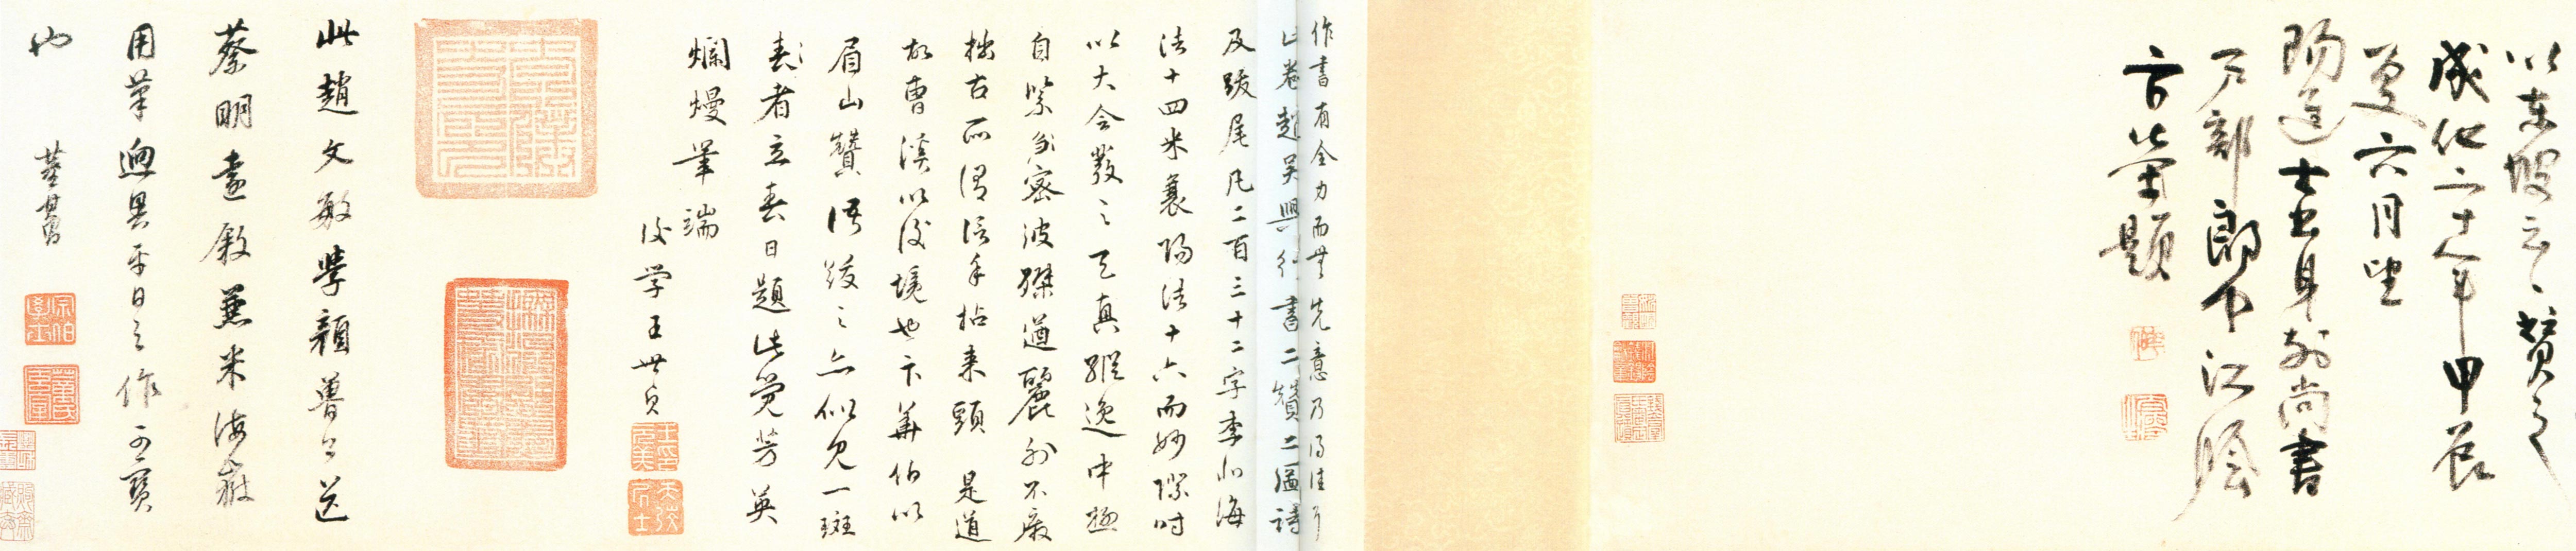 以东坡云云赞之
成化二十年甲辰
夏六月望
赐进士出身前尚书
户部郎中江
题
作書有全力而無先意乃得佳耳
此卷趙吳興行書二贊二通詩
及跋尾凡二百三十二字李北海
法十四米襄陽法十六而妙際時
以大令發之天真縱逸中極
自緊密波磔遒麗外不廢
拙古所謂信手拈來頭頭是道
故曹溪以後境也卞華伯以
眉山贊語跋之亦似見一斑
春者立春日題此覺芳英
爛熳筆端
後学王世貞
此趙文敏學顏魯公送
蔡明遠敘兼米海嶽
用筆迥異平日之作可寶
也
董其昌